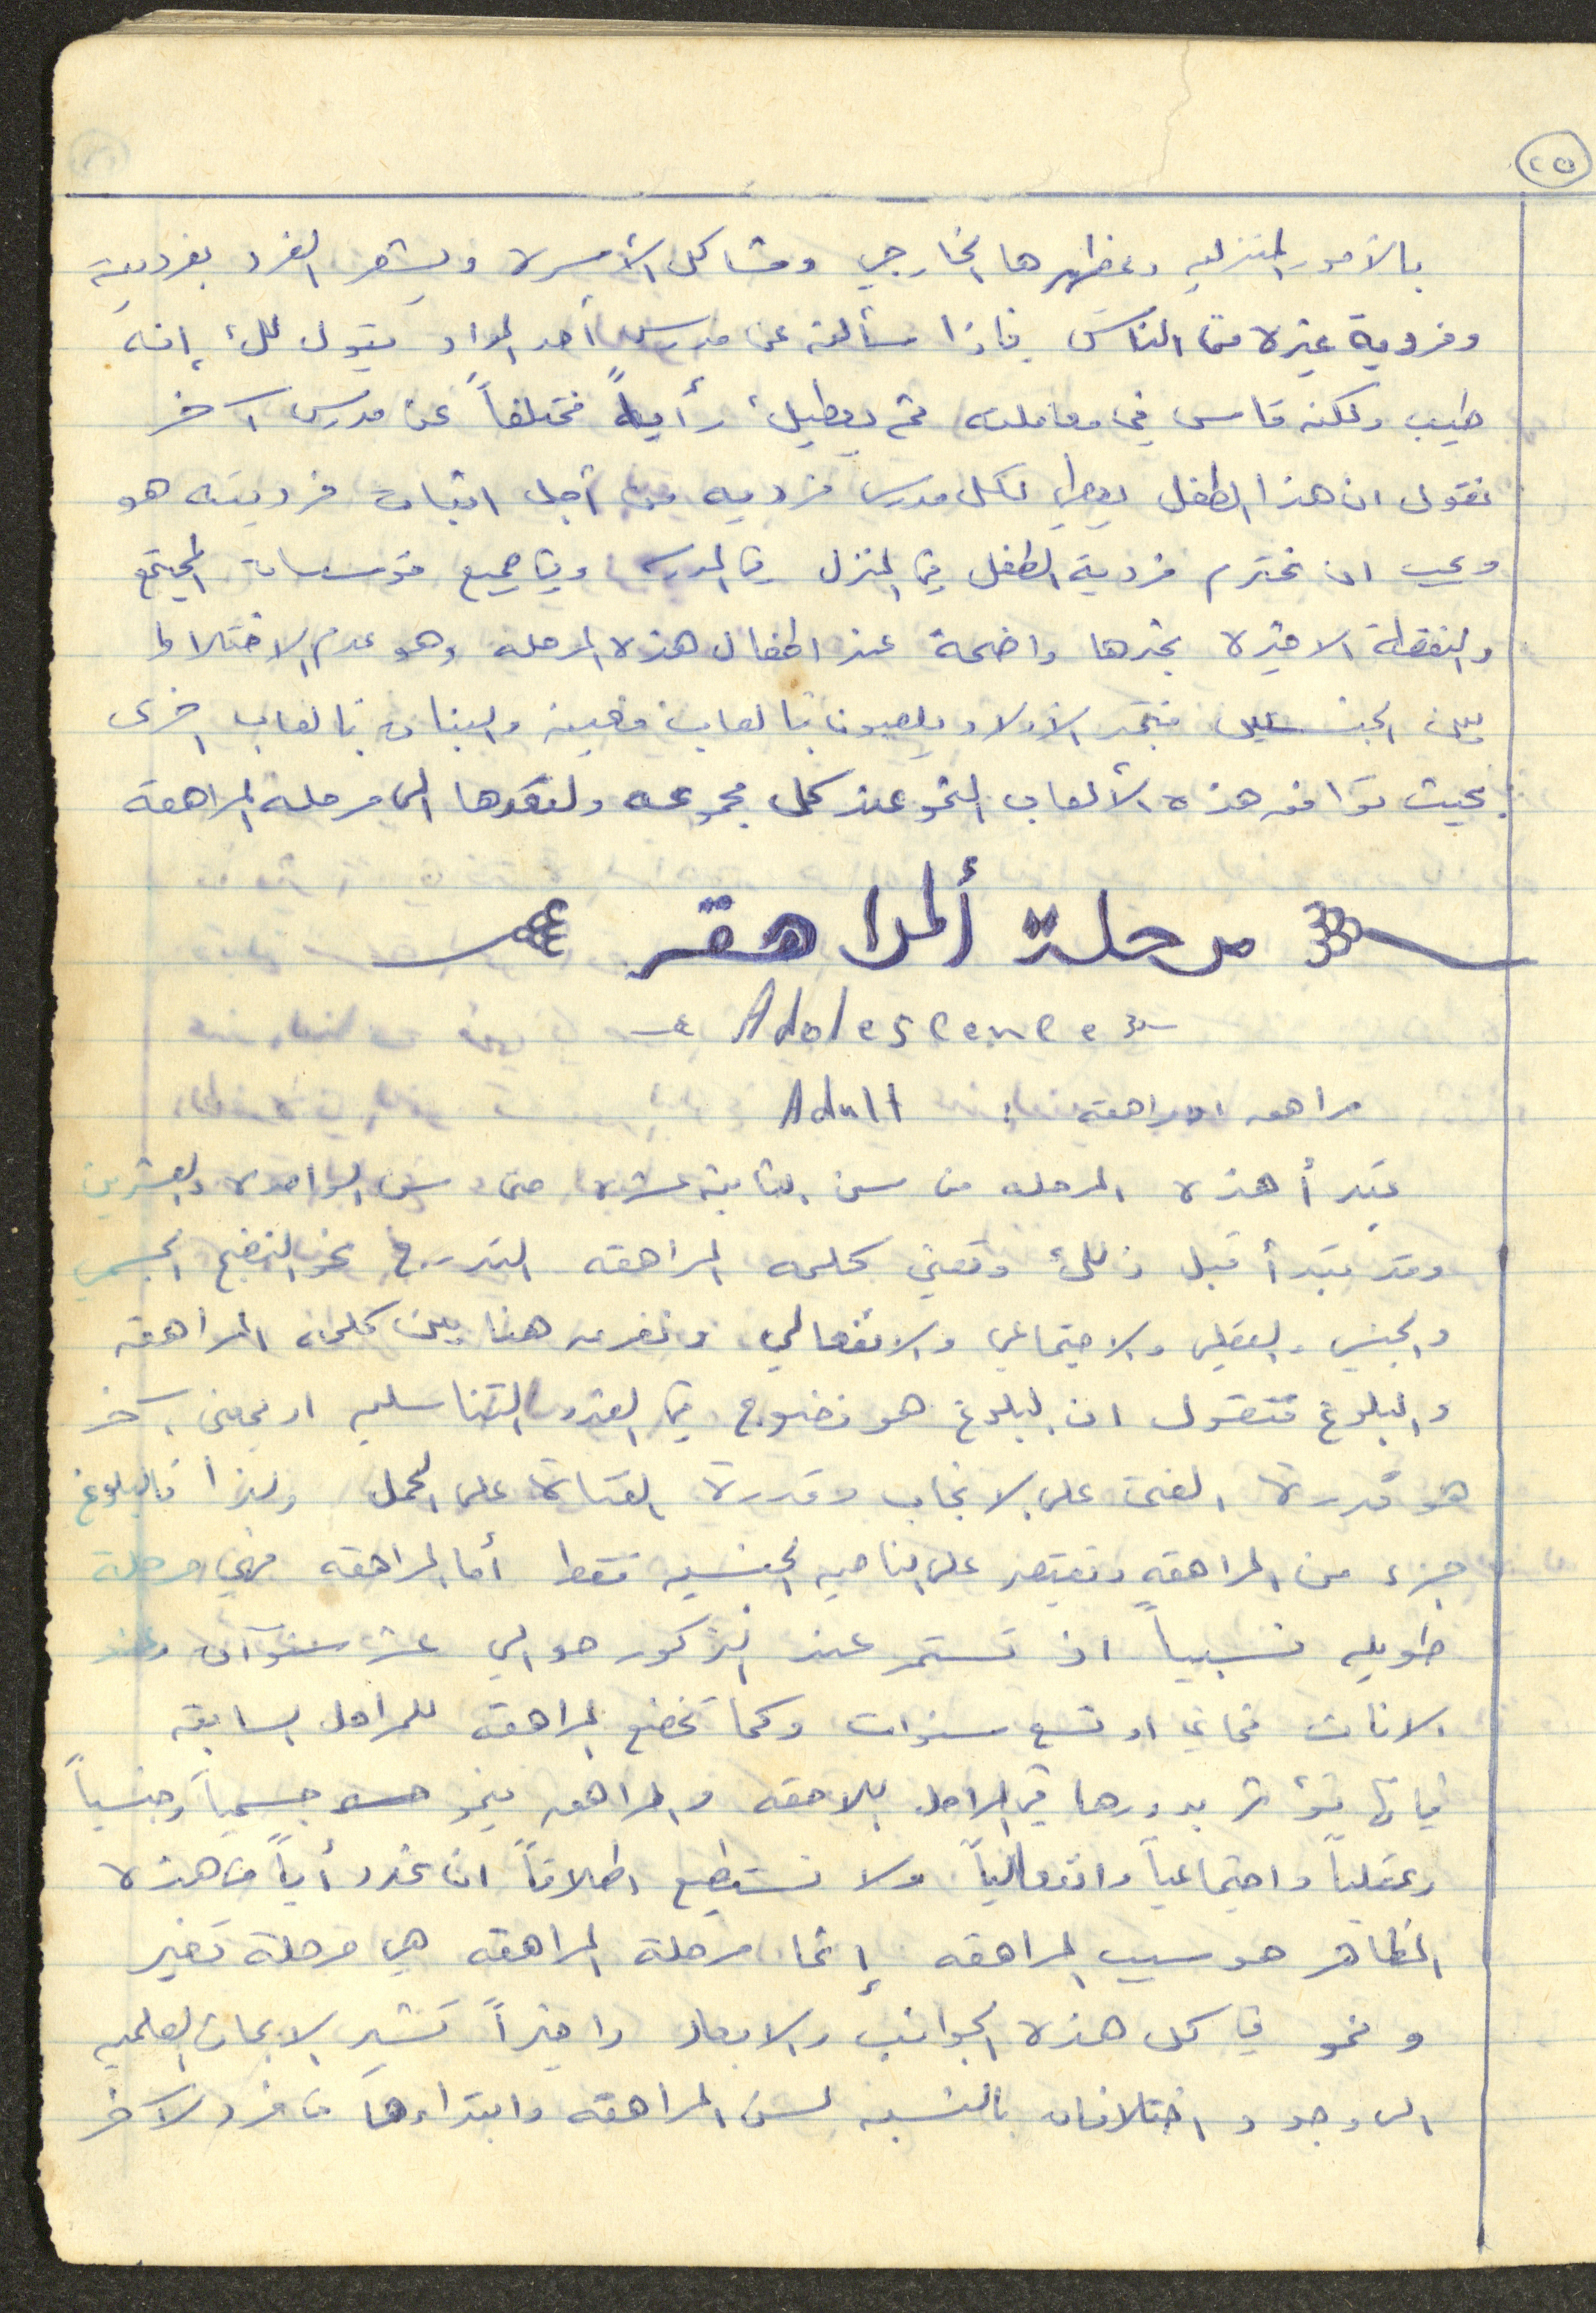 ٢٥
بالأمور المنزليه ومظهرها الخارجي ومشاكل الأسرة ويشعر الفرد بفرديته
وفردية غيره من الناس فإذا سألته عن مدرس أحد المواد يقول لك إنه
طيب ولكنه قاس في معاملته ثم يعطيك رأياً مختلفاً عن مدرس آخر
نقول ان هذا الطفل يعطي لكل مدرس فرديه من أجل اثبات فرديته هو
ويجب ان نحترم فردية الطفل في المنزل في المدرسه وفي جميع مؤسسات المجتمع
والنقطة الاخيرة نجدها واضحة عند اطفال هذه المرحله وهو عدم الاختلاط
بين الجنسين فنجد الأولاد يلعبون بالعاب معينه والبنات بالعاب اخرى
بحيث توافق هذه الألعاب النمو عند كل مجموعه ولنعدها الى مرحلة المراهقه
مرحلة ألمراهقه
Adolescence
مراهق او مراهقه : Adult
تبدأ هذه المرحله من سن الثانية عشره حتى سن الواحده والعشرين
وقد تبدأ قبل ذلك وتعني كلمه المراهقه التدرج نحو النضج الجسمي
والجنسي والعقلي والاجتماعي والانفعالي ونفرق هنا بين كلمة المراهقه
والبلوغ فنقول ان البلوغ هو نضوج في الغدد التناسليه او بمعنى آخر
هو قدرة الفتى على الانجاب وقدرة الفتاة على الحمل ولذا فالبلوغ
جزء من المراهقه وتقتصر على الناحيه الجنسيه فقط أما المراهقه فهي مرحلة
طويله نسبياً اذ تستمر عند الذكور حوالي عشر سنوات وعند
الاناث ثماني او تسع سنوات وكما تخضع المراهقه للمراحل السابقه
فإنها تؤثر بدورها في المراحل اللاحقه والمراهق ينمو جسمياً وجنسياً
وعقلياً واجتماعياً وانفعالياً ولا نستطيع اطلاقاً ان نحدد أياً من هذه
المظاهر هو سبب المراهقه إنما مرحلة المراهقه هي مرحلة تغير
ونمو في كل هذه الجوانب والابعاد واخيراً تشير الابحاث العلميه
الى وجود اختلافات بالنسبه لسن المراهقه وابتداءها من فرد لآخر